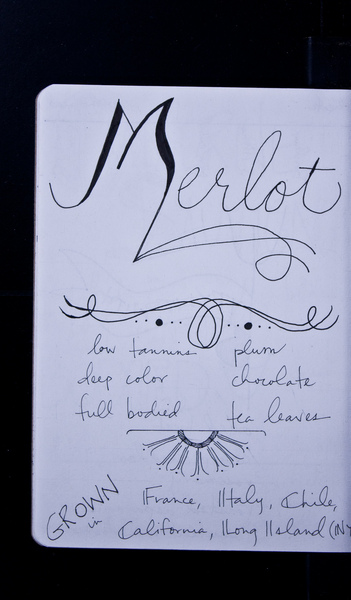 Merlot
low tannins plum
deep color chocolate
full bodied tea leaves
GROWN in France, Italy, Chile,
California, Long Island (NY